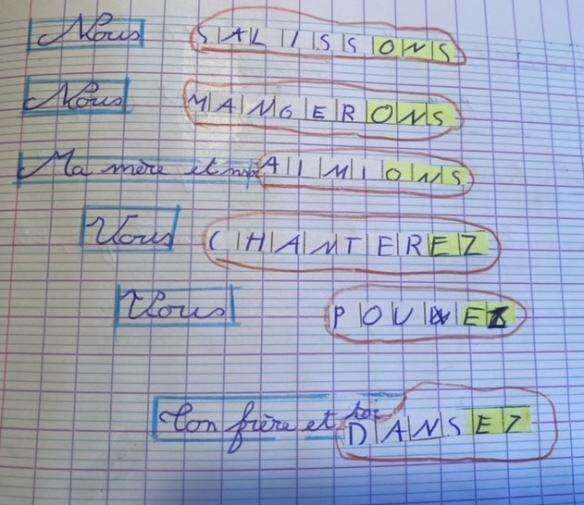 Nous SALISSONS
Nous MANGERONS
Ma mère et moi AIMIONS
Vous CHANTEREZ
Vous POUVEZ
Ton frère et toi DANSEZ